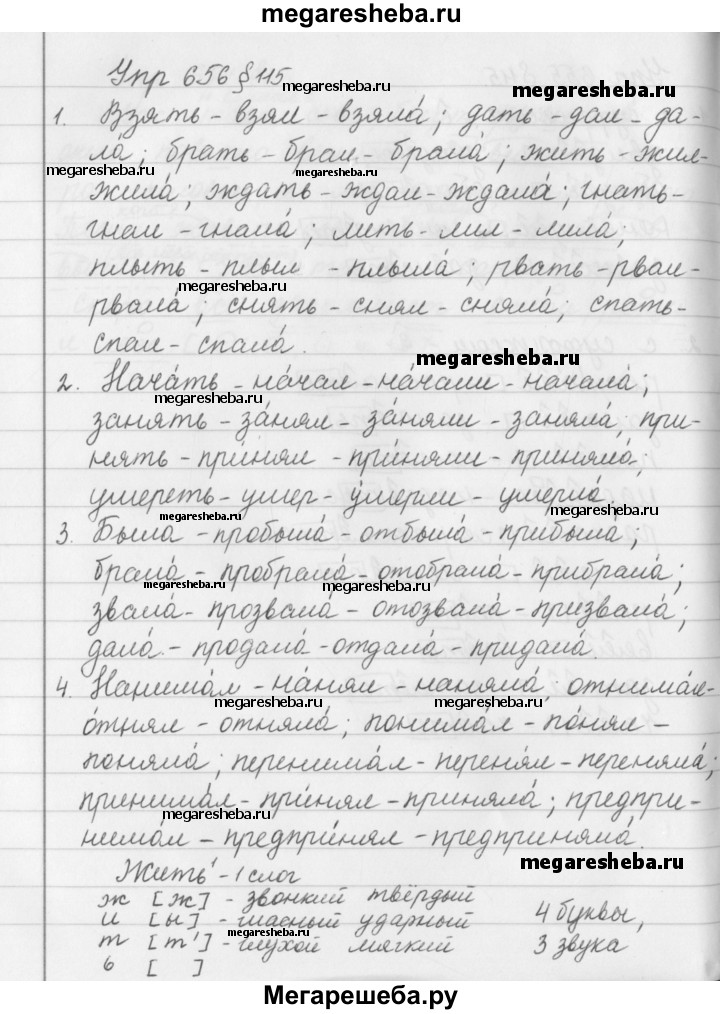 megaresheba.ru
Упр 656 § 115
megaresheba.ru
megaresheba.ru
1. Взять - взял - взяла́; дать - дал - да-
ла́; брать - брал - брала́; жить - жил -
megaresheba.ru
megaresheba.ru
жила́; ждать - ждал - ждала́; гнать -
гнал - гнала́; лить - лил - лила́;
плыть - плыл - плыла́; рвать - рвал -
megaresheba.ru
рвала́; снять - снял - сняла́; спать -
спал - спала́.
megaresheba.ru
2. Нача́ть - на́чал - на́чали - начала́;
megaresheba.ru
занять - за́нял - за́няли - заняла́, при-
нять - при́нял - при́няли - приняла́;
megaresheba.ru
умереть - умер - у́мерли - умерла́
megaresheba.ru
3. Была́ - пробыла́ - отбыла́ - прибыла́;
брала́ - пробрала́ - отобрала́ - прибрала́;
megaresheba.ru
megaresheba.ru
звала́ - прозвала́ - отозвала́ - призвала́;
дала́ - продала́ - отдала́ - придала́.
megaresheba.ru
4. Нанима́л - на́нял - наняла́, отнима́л -
megaresheba.ru
megaresheba.ru
о́тнял - отняла́; понима́л - по́нял -
поняла́; перенима́л - перенял - переняла́;
megaresheba.ru
принима́л - при́нял - приняла́; предпри-
megaresheba.ru
megaresheba.ru
нима́л - предпри́нял - предприняла́.
Жить' - 1 слог
megaresheba.ru
ж [ж] - звонкий твёрдый
и [ы] - гласный ударный 4 буквы,
megaresheba.ru
т [т'] - глухой мягкий 3 звука
megaresheba.ru
ь [ ]
Мегарешеба.ру